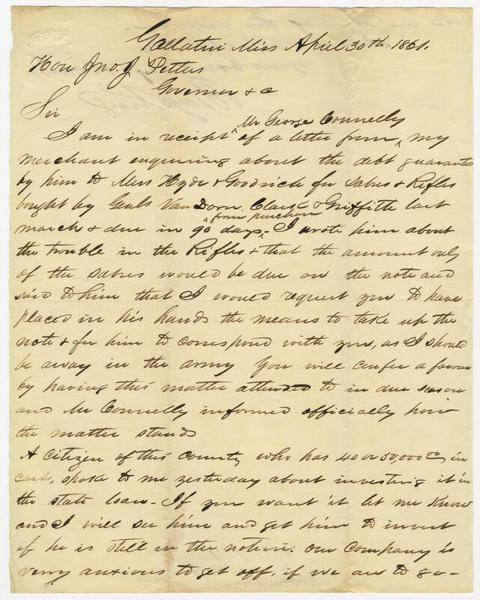 Gallatin Miss April 30th 1861.
Hon Jno. J. Pettus
Governor &c
Sir
Mr George Connelly
I am in receipt of a letter from, my
merchant enquiring about the debt guaranteed
by him to Mess Hyde & Goodrich for Sabres & Rifles
bought by Genls Van Dorn, Clark & Griffith last
from purchase
march & due in 90 days. I wrote him about
the trouble in the Rifles & that the amount only
of the sabres would be due on the note and
said to him that I would request you to have
placed in his hands the means to take up the
note & for him to correspond with you, as I should
be away in the army You will confer a favour
by having this matter attended to in due season
and Mr Connelly informed officially how
the matter stands
A Citizen of this County who has 40 or 50,000 00 in
cash, spoke to me yesterday about investing it in
the state loan. If you want it let me know
and I will see him and get him to invest
if he is still in the notion. Our Company is
very anxious to get off, if we are to go-